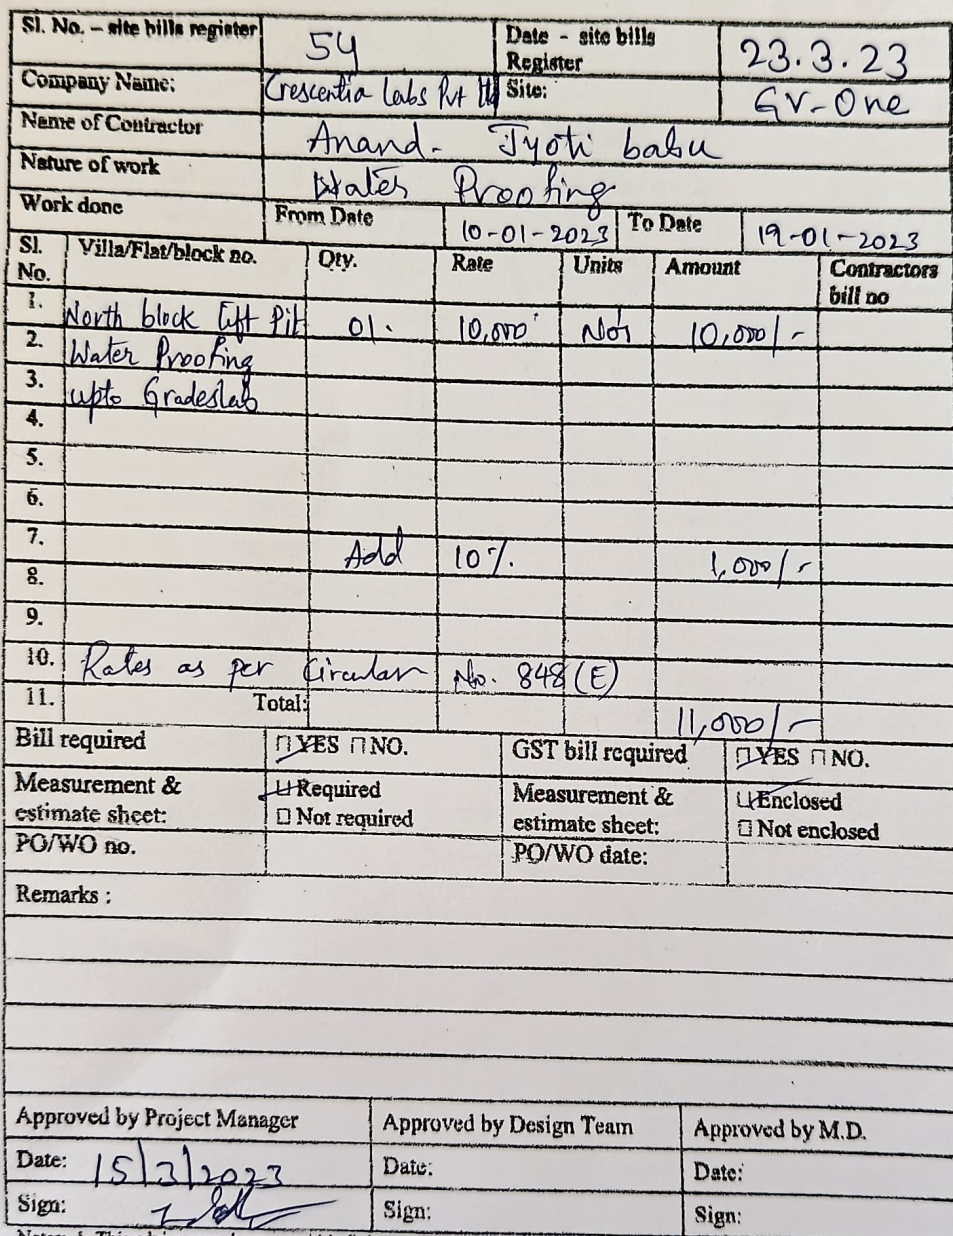 Sl. No. – site bills register 54 Date - site bills Register 23.3.23
Company Name: Crescentia Labs Pvt ltd Site: GV-One
Name of Contractor Anand. Jyoti babu
Nature of work Water Proofing
Work done From Date 10-01-2023 To Date 19-01-2023
Sl. No. Villa/Flat/block no. Qty. Rate Units Amount Contractors bill no
1. North block lift Pit 01. 10,000 No's 10,000/-
2. Water Proofing
3. upto Gradeslab
4.
5.
6.
7. Add 10%. 1,000/-
8.
9.
10. Rates as per Circular No. 848(E)
11. Total: 11,000/-
Bill required YES NO. GST bill required YES NO.
Measurement & estimate sheet: Required Not required Measurement & estimate sheet: Enclosed Not enclosed
PO/WO no. PO/WO date:
Remarks :
Approved by Project Manager Approved by Design Team Approved by M.D.
Date: 15/3/2023 Date: Date:
Sign: Sign: Sign: